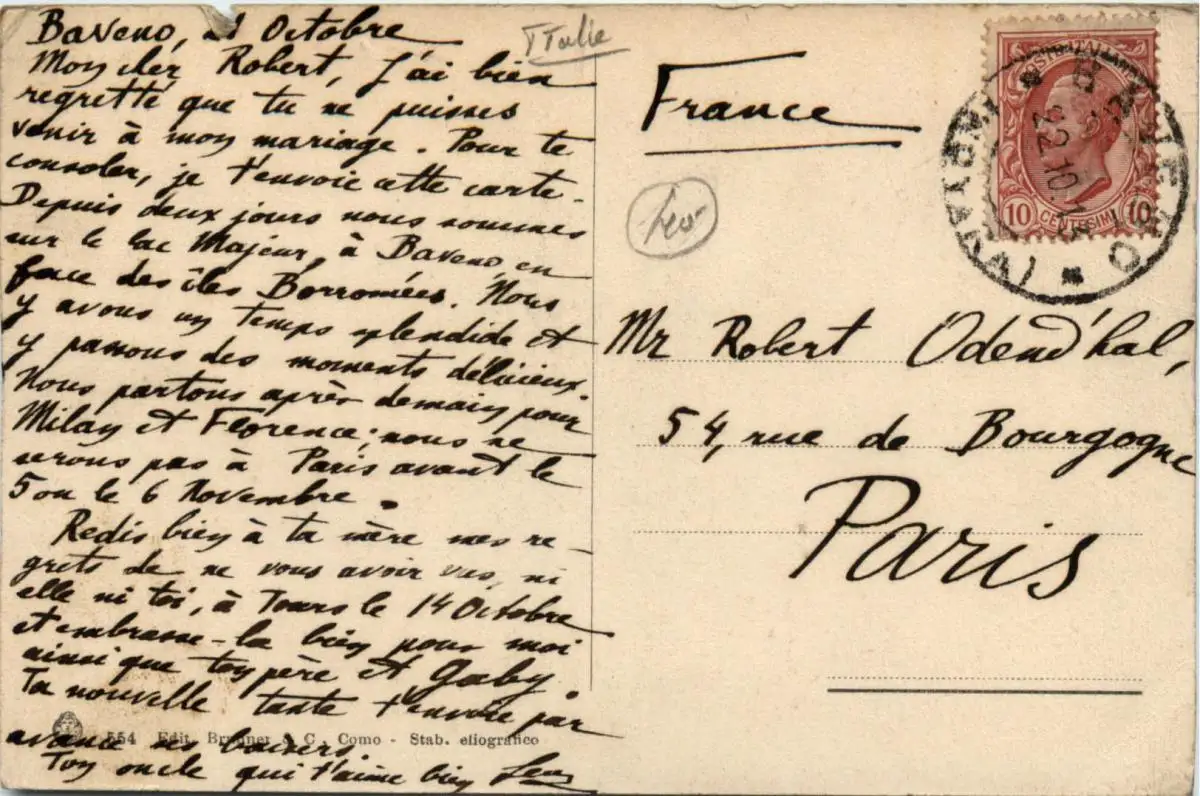 Baveno, 21 Octobre
Mon cher Robert, J'ai bien
regretté que tu ne puisses
venir à mon mariage. Pour te
consoler, je t'envoie cette carte.
Depuis deux jours nous sommes
sur le lac Majeur, à Baveno en
face des îles Borromées. Nous
y avons un temps splendide et
y passons des moments délicieux.
Nous partons après demain pour
Milan et Florence; nous ne
serons pas à Paris avant le
5 ou le 6 Novembre.
Redis bien à ta mère mes re-
grets de ne vous avoir vus, ni
elle ni toi, à Tours le 14 Octobre
et embrasse-la bien pour moi
ainsi que ton père et Gaby.
Ta nouvelle tante t'envoie par
avance ses baisers.
Ton oncle qui t'aime bien
554 Edit. Brunner & C. Como - Stab. eliografico
Italie
France
POSTE ITALIANE
10 CENTESIMI 10
BAVENO
22.10.1
Mr Robert Odend'hal,
54, rue de Bourgogne
Paris